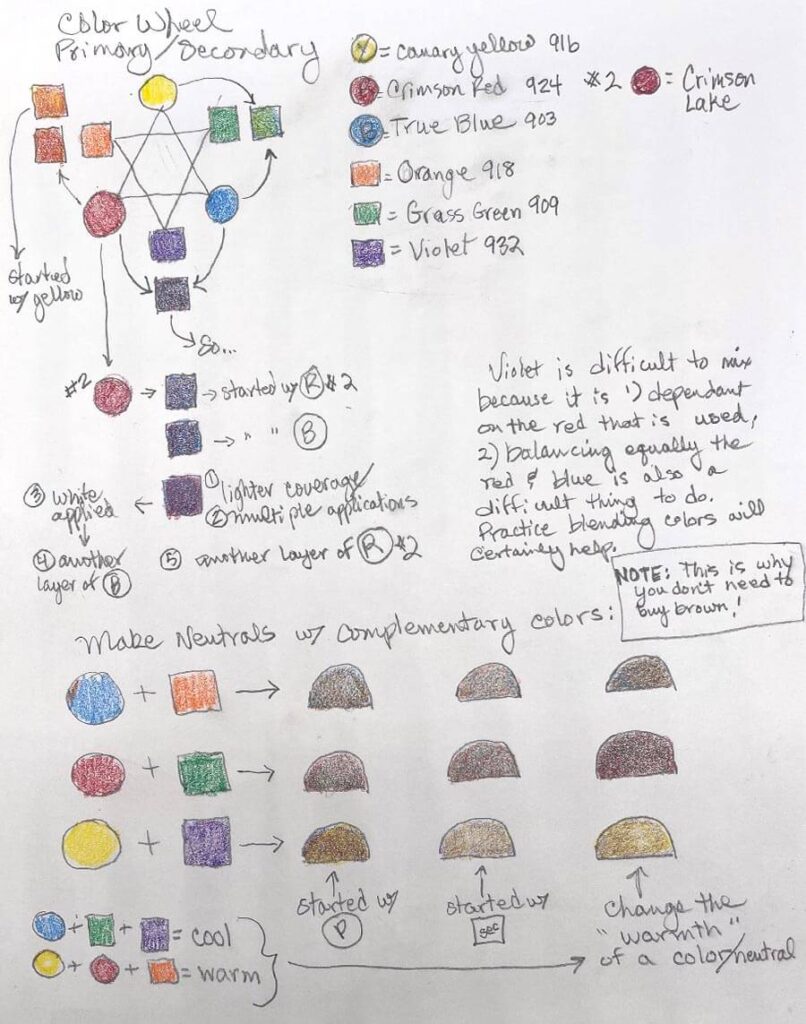 Color Wheel
Primary/Secondary
Y = Canary Yellow 916
R = Crimson Red 924
#2 = Crimson
Lake
B = True Blue 903
= Orange 918
= Grass Green 909
= Violet 932
started
w/ yellow
So...
#2 → started w/ R #2
→ " " B
① lighter coverage/
② multiple applications
③ white
applied
④ another
layer of B
⑤ another layer of R #2
Violet is difficult to mix
because it is 1) dependant
on the red that is used,
2) balancing equally the
red & blue is also a
difficult thing to do.
Practice blending colors will
certainly help.
NOTE: This is why
you don't need to
buy brown!
Make Neutrals w/ Complementary colors:
+ →
+ →
+ →
started w/
P
started w/
sec
change the
"warmth"
of a color/neutral
+ + = cool
+ + = warm